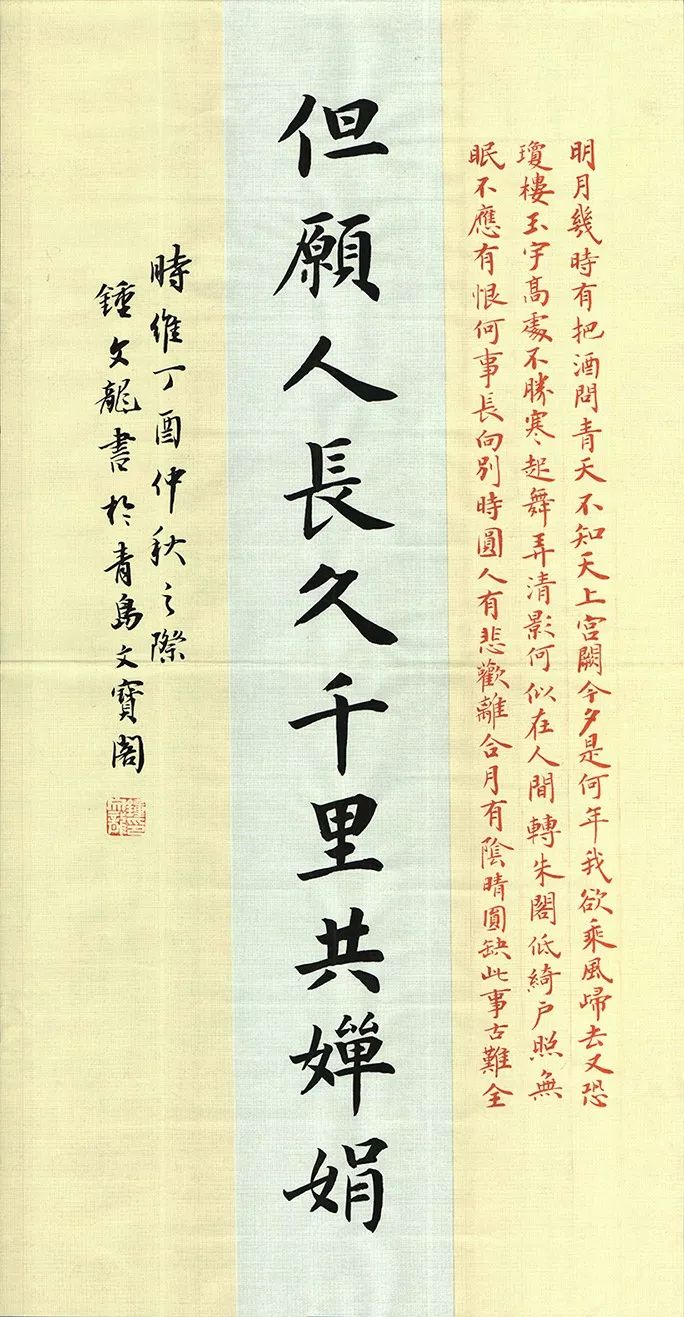 明月幾時有把酒問青天不知天上宮闕今夕是何年我欲乘風歸去又恐
瓊樓玉宇高處不勝寒起舞弄清影何似在人間轉朱閣低綺户照無
眠不應有恨何事長向別時圓人有悲歡離合月有陰晴圓缺此事古難全
但願人長久千里共嬋娟
時維丁酉仲秋之際
鍾文龍書於青島文寶閣